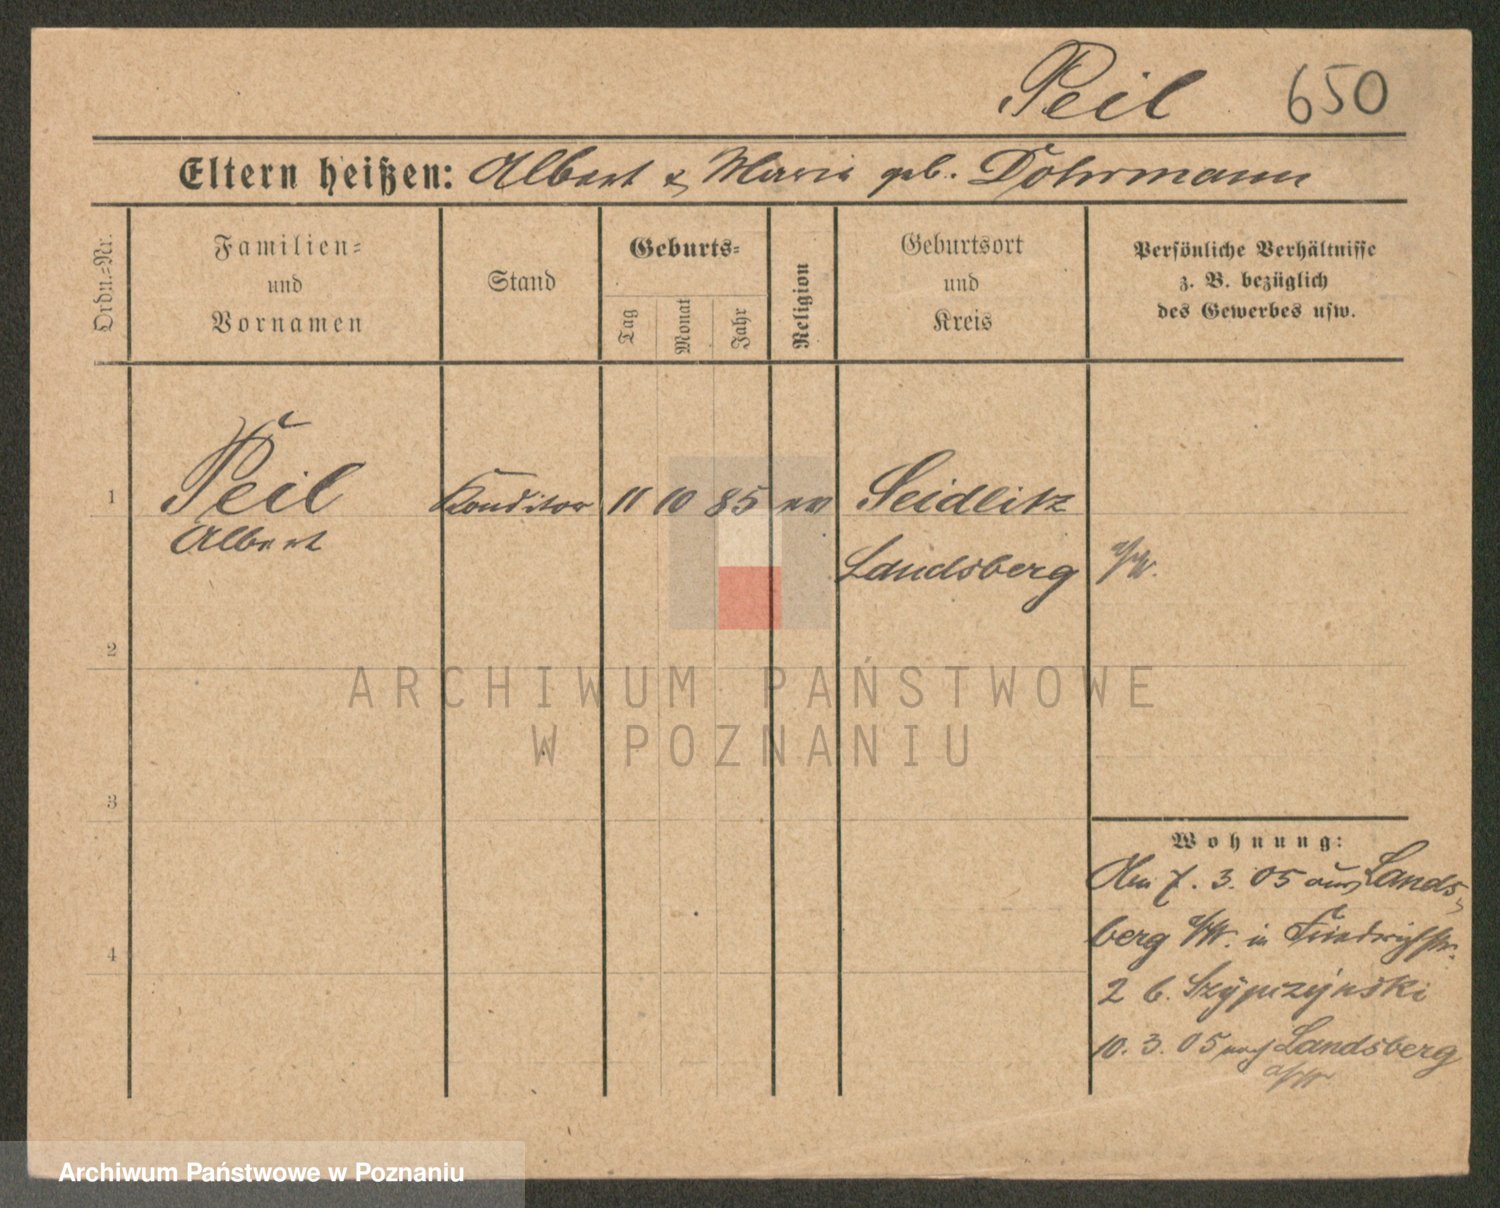 Peil 650
Eltern heißen: Albert & Marie geb. Dohrmann
Ordn.-Nr.
Familien-
und
Vornamen
Stand
Geburts-
Tag
Monat
Jahr
Religion
Geburtsort
und
Kreis
Persönliche Verhältnisse
z. B. bezüglich
des Gewerbes usw.
1 Peil Konditor 11 10 85 ev Seidlitz
Albert
Landsberg a/W.
2
3
4
Wohnung:
Am 7. 3. 05 aus Lands-
berg a/W. in Friedrichstr.
2 b. Szypczyński
10. 3. 05 nach Landsberg
a/W
ARCHIWUM PAŃSTWOWE
W POZNANIU
Archiwum Państwowe w Poznaniu